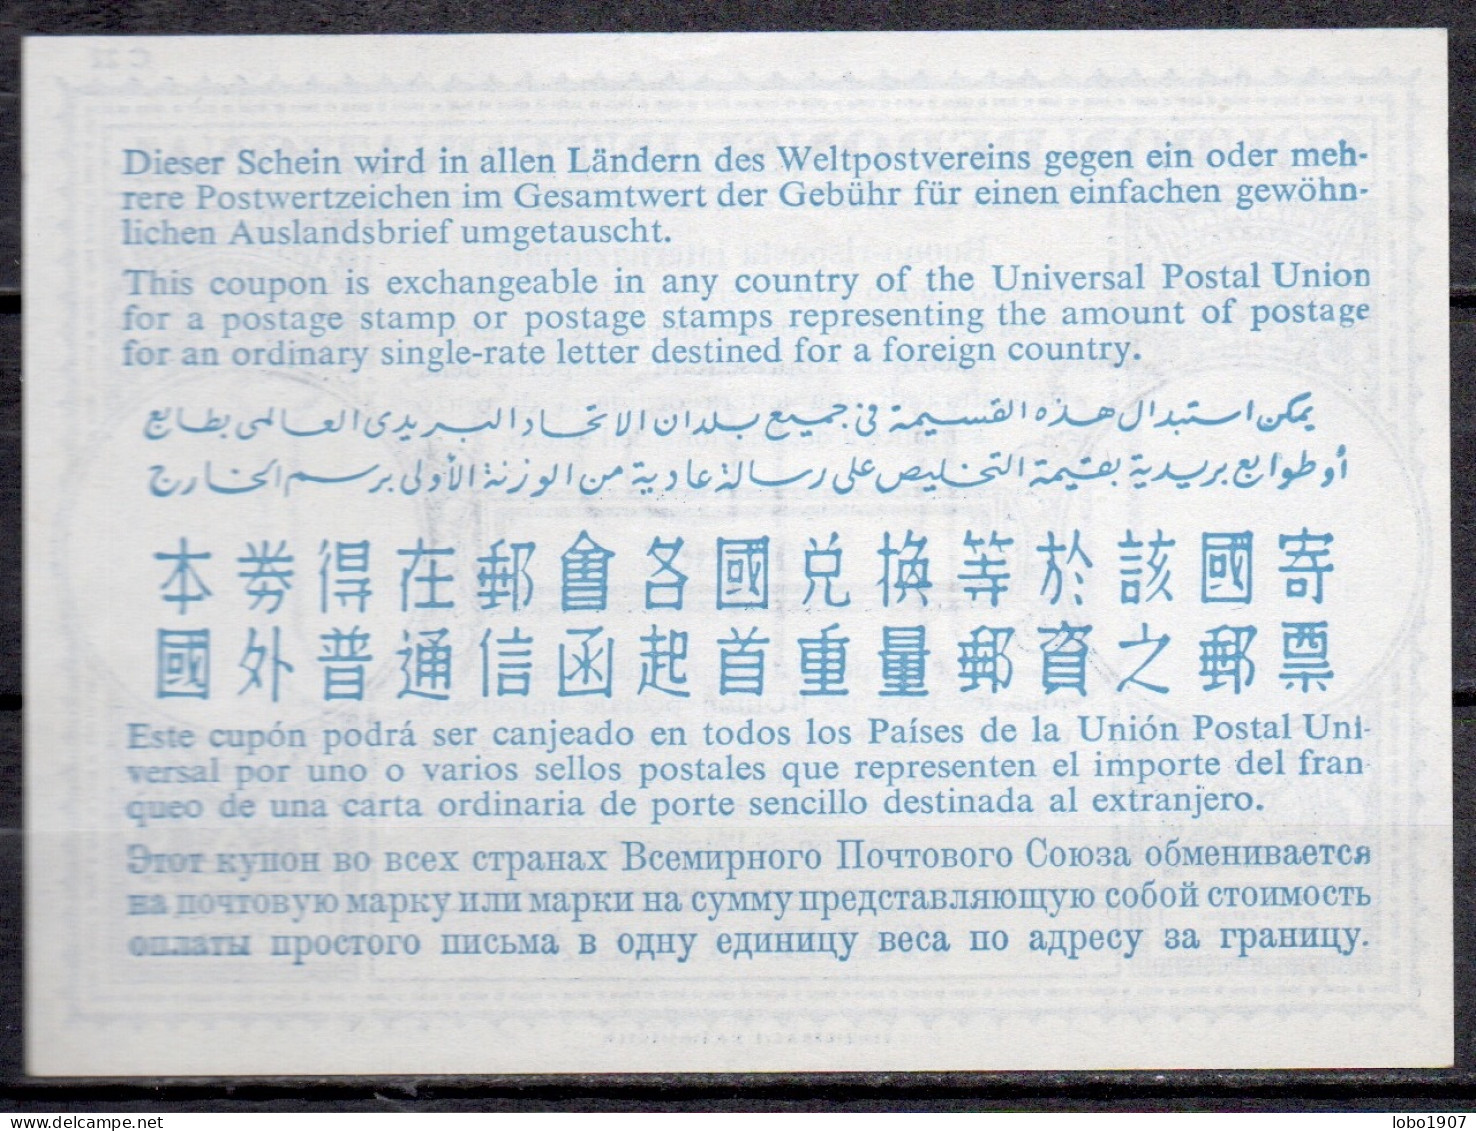 Dieser Schein wird in allen Ländern des Weltpostvereins gegen ein oder meh-
rere Postwertzeichen im Gesamtwert der Gebühr für einen einfachen gewöhn-
lichen Auslandsbrief umgetauscht.
This coupon is exchangeable in any country of the Universal Postal Union
for a postage stamp or postage stamps representing the amount of postage
for an ordinary single-rate letter destined for a foreign country.
يمكن استبدال هذه القسيمة في جميع بلدان الاتحاد البريدى العالمى بطابع
أو طوابع بريدية بقيمة التخليص على رسالة عادية من الوزنة الأولى برسم الخارج
本劵得在郵會各國兑換等於該國寄
國外普通信函起首重量郵資之郵票
Este cupón podrá ser canjeado en todos los Países de la Unión Postal Uni-
versal por uno o varios sellos postales que representen el importe del fran-
queo de una carta ordinaria de porte sencillo destinada al extranjero.
Этот купон во всех странах Всемирного Почтового Союза обменивается
на почтовую марку или марки на сумму представляющую собой стоимость
оплаты простого письма в одну единицу веса по адресу за границу.
C 22
lobo1907